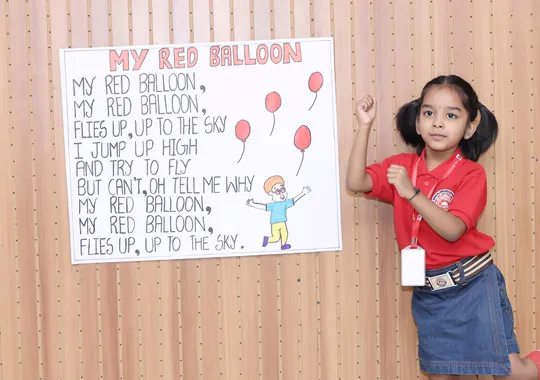 MY RED BALLOON
MY RED BALLOON,
MY RED BALLOON,
FLIES UP, UP TO THE SKY
I JUMP UP HIGH
AND TRY TO FLY
BUT CAN'T, OH TELL ME WHY
MY RED BALLOON,
MY RED BALLOON,
FLIES UP, UP TO THE SKY.